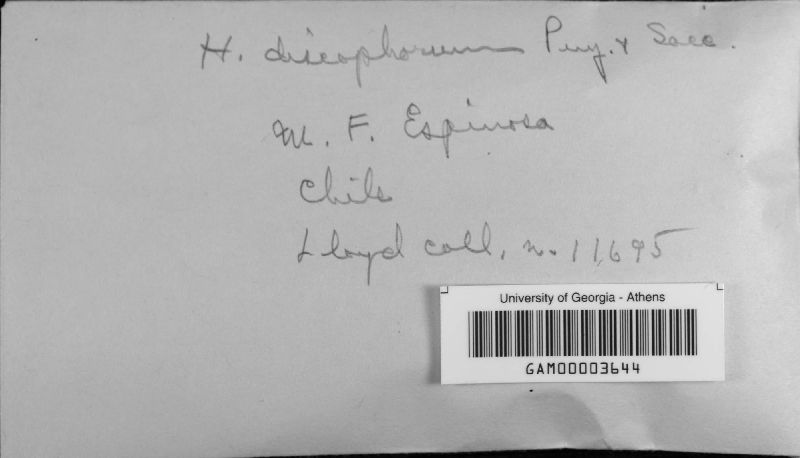 H. discophorum Puy. & Sacc.
M. F. Espinosa
Chile
Lloyd coll, n. 11,695
University of Georgia - Athens
GAM00003644